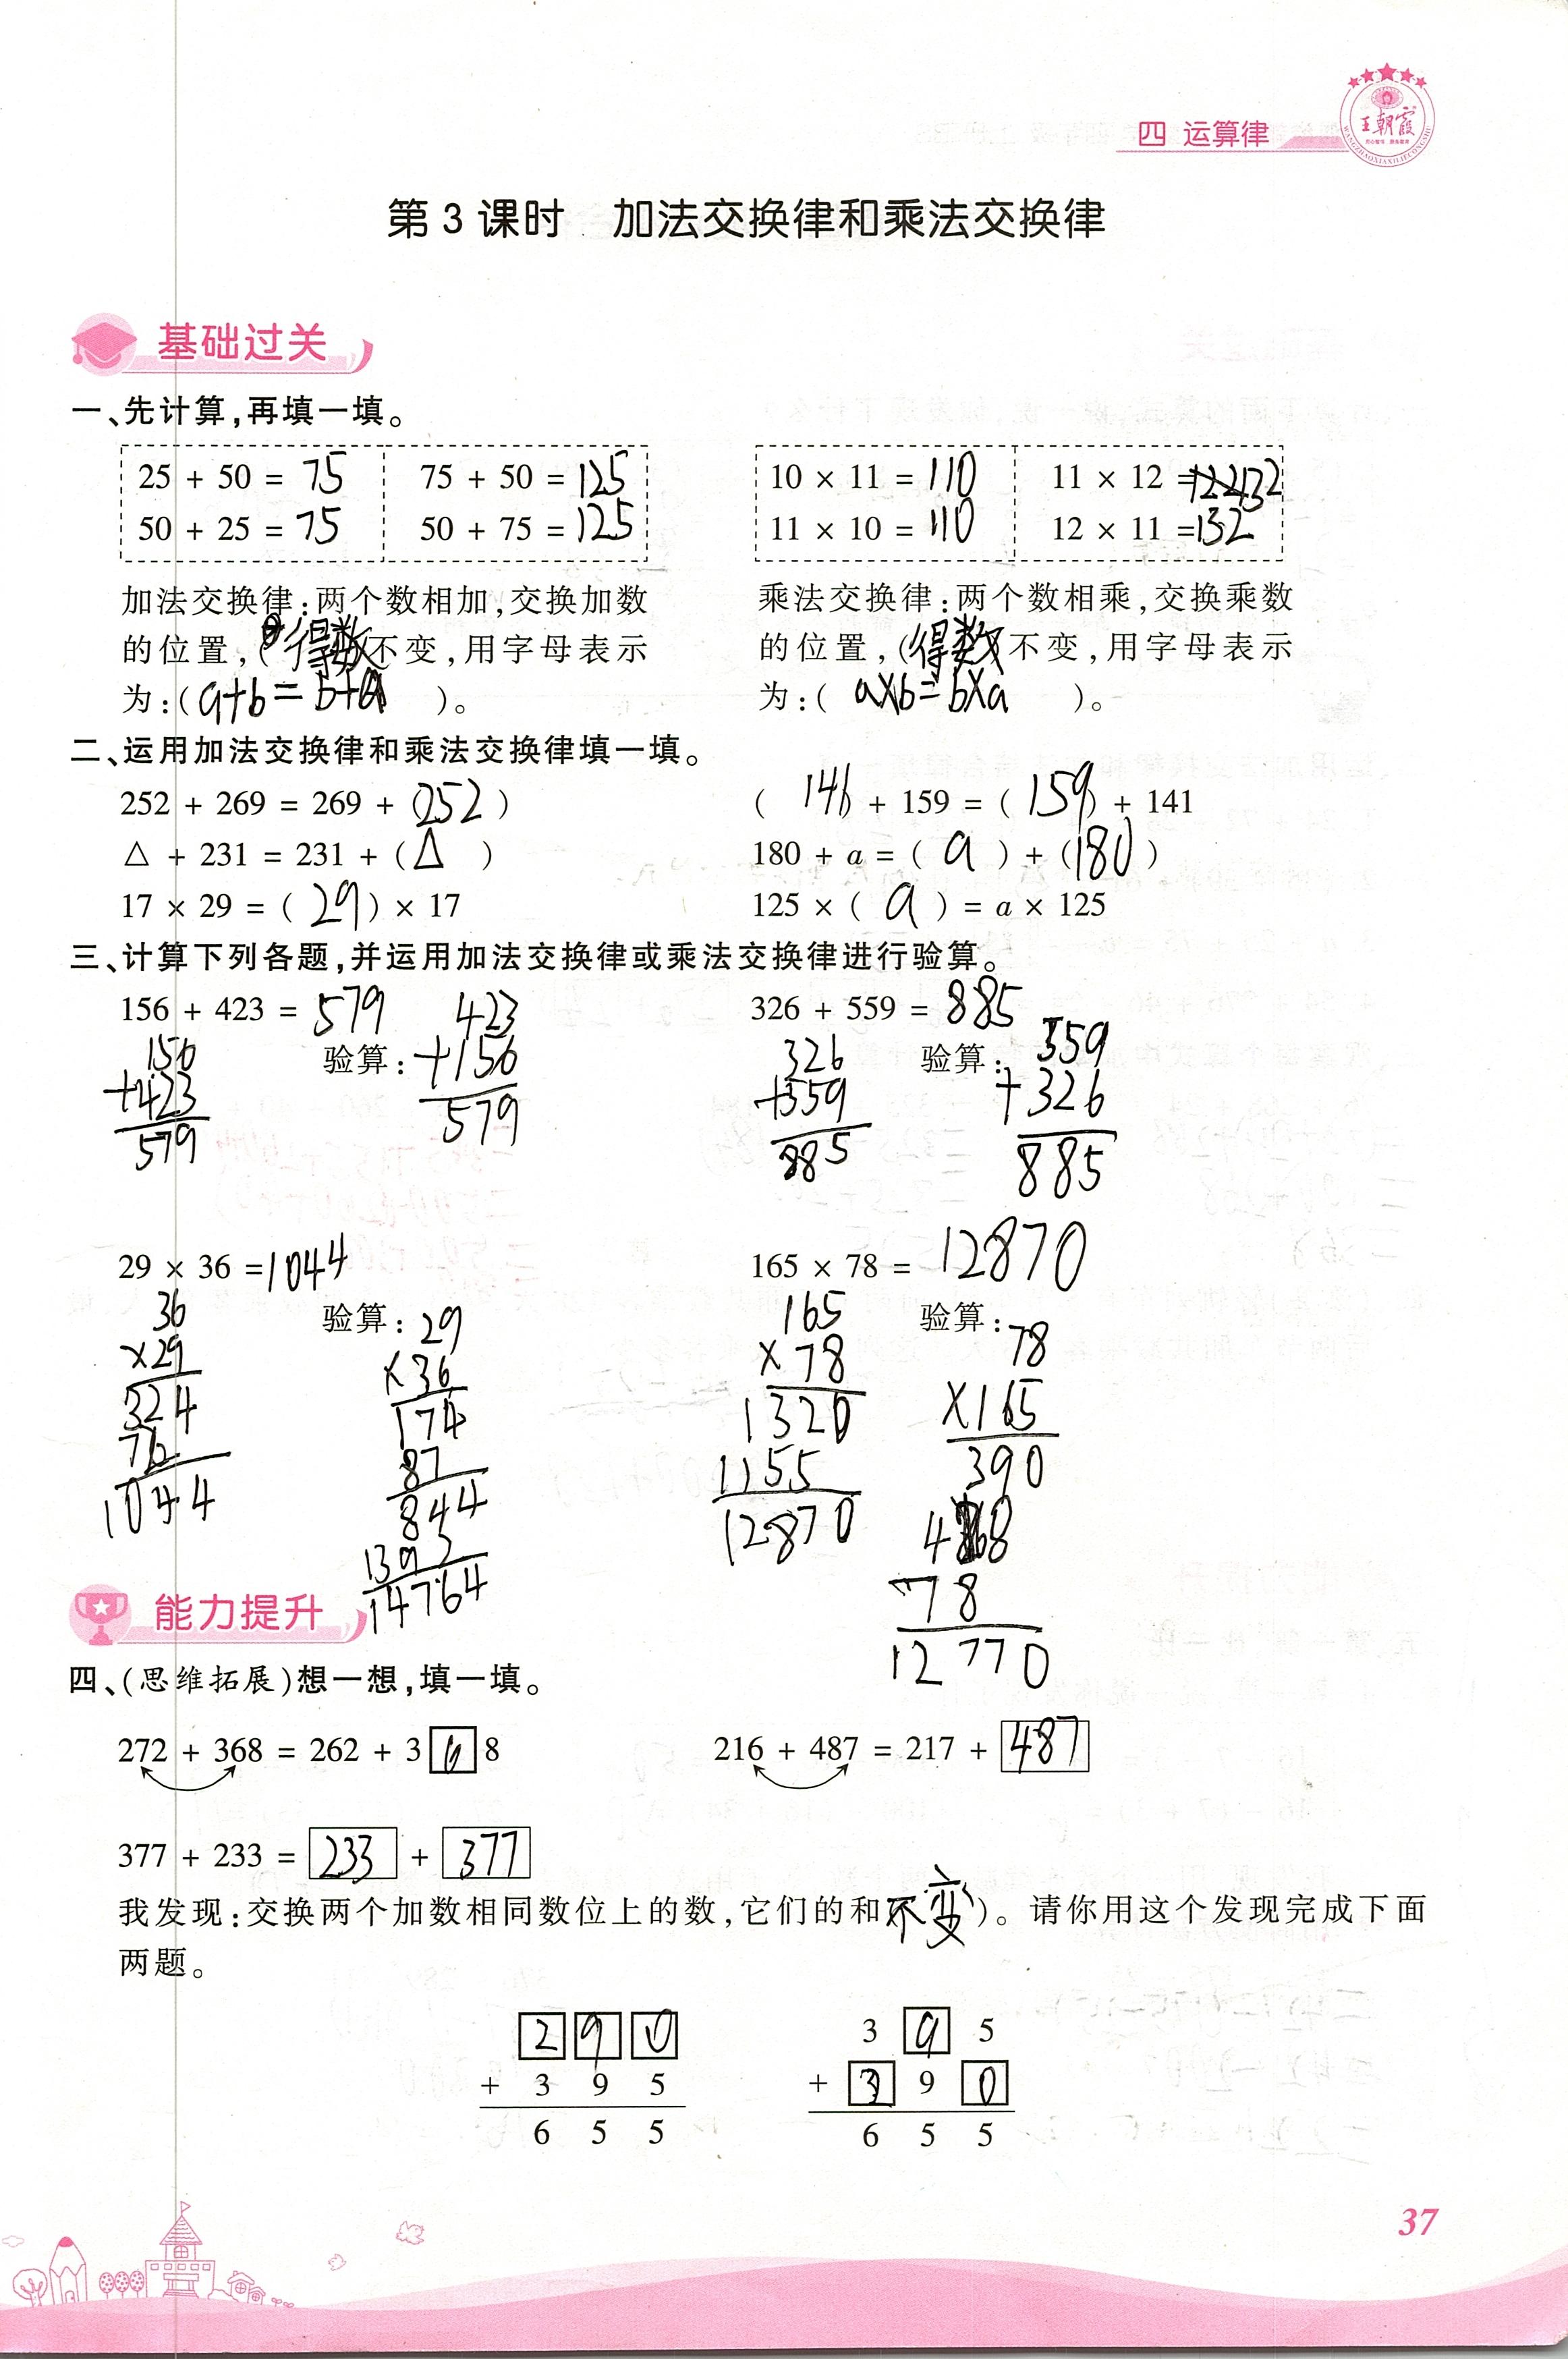 四 运算律
王朝霞
WANGZHAOXIAXILIECONGSHU
第 3 课时 加法交换律和乘法交换律
基础过关
一、先计算,再填一填。
25 + 50 = 75 75 + 50 = 125 10 × 11 = 110 11 × 12 = 132
50 + 25 = 75 50 + 75 = 125 11 × 10 = 110 12 × 11 = 132
加法交换律:两个数相加,交换加数
的位置,(得数)不变,用字母表示
为:( a+b = b+a )。
乘法交换律:两个数相乘,交换乘数
的位置,(得数)不变,用字母表示
为:( a×b=b×a )。
二、运用加法交换律和乘法交换律填一填。
252 + 269 = 269 + (252) ( 146 + 159 = ( 159) + 141
△ + 231 = 231 + (△ ) 180 + a = ( a ) + (180)
17 × 29 = ( 29) × 17 125 × ( a ) = a × 125
三、计算下列各题,并运用加法交换律或乘法交换律进行验算。
156 + 423 = 579 326 + 559 = 885
156
+423
579
验算: 423
+156
579
326
+559
885
验算: 559
+326
885
29 × 36 = 1044 165 × 78 = 12870
36
×29
324
76
1044
验算: 29
×36
174
87
844
1393
14764
165
×78
1320
1155
12870
验算: 78
×165
390
78
12770
能力提升
四、(思维拓展)想一想,填一填。
272 + 368 = 262 + 3 6 8 216 + 487 = 217 + 487
377 + 233 = 233 + 377
我发现:交换两个加数相同数位上的数,它们的和(不变)。请你用这个发现完成下面
两题。
2 9 0
+ 3 9 5
6 5 5
3 9 5
+ 3 9 0
6 5 5
37